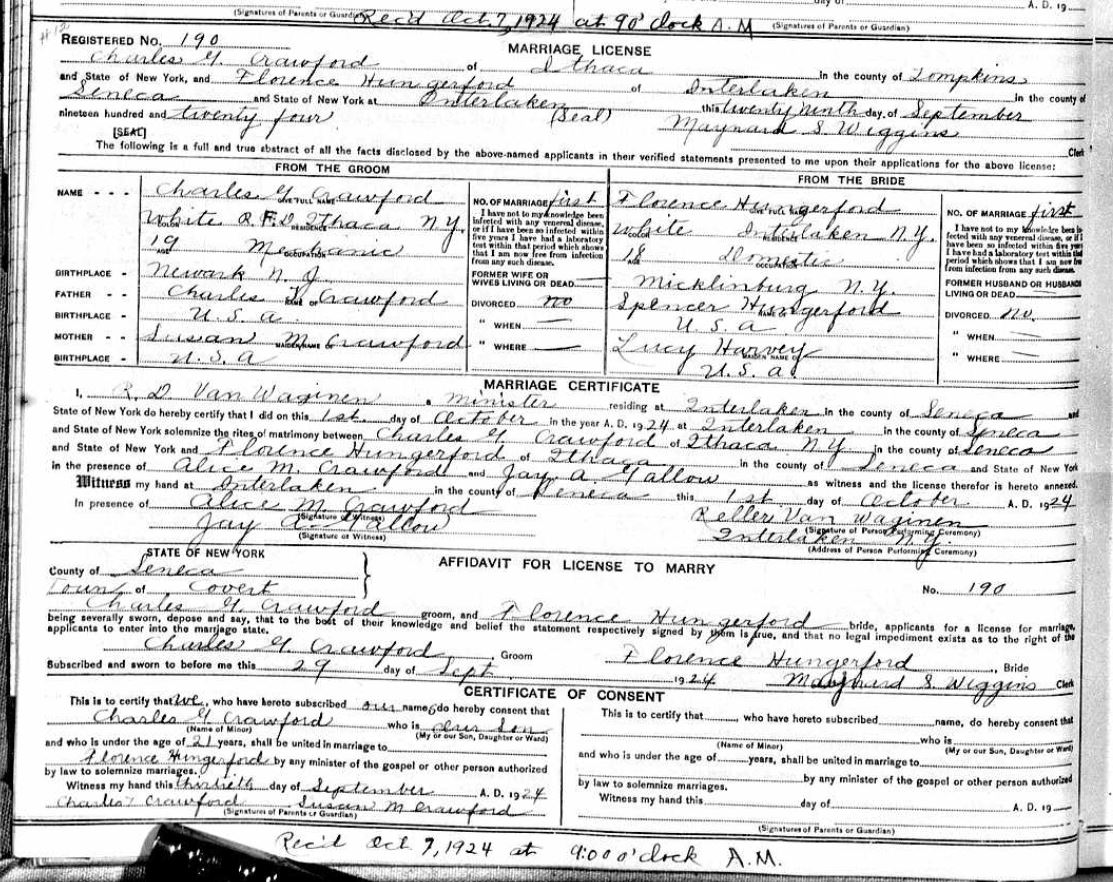 A. D. 19
(Signatures of Parents or Guardian) Rec'd Oct 7, 1924 at 9 O'clock A.M (Signatures of Parents or Guardian)
REGISTERED No. 190 MARRIAGE LICENSE
Charles G. Crawford of Ithaca in the county of Tompkins
and State of New York, and Florence Hungerford of Interlaken in the county of
Seneca and State of New York at Interlaken this twenty ninth day of September
nineteen hundred and twenty four (Seal) Maynard S. Wiggins Clerk
[SEAL]
The following is a full and true abstract of all the facts disclosed by the above-named applicants in their verified statements presented to me upon their applications for the above license:
FROM THE GROOM
NAME - - - Charles G. Crawford
GIVE FULL NAME
White R.F.D. Ithaca N.Y.
COLOR RESIDENCE
19 Mechanic
AGE OCCUPATION
BIRTHPLACE - Newark N. J
FATHER - - Charles Crawford
NAME OF
BIRTHPLACE - U.S.A.
MOTHER - - Susan M. Crawford
MAIDEN NAME OF
BIRTHPLACE - U.S.A
NO. OF MARRIAGE first
I have not to my knowledge been
infected with any venereal disease,
or if I have been so infected within
five years I have had a laboratory
test within that period which shows
that I am now free from infection
from any such disease.
FORMER WIFE OR
WIVES LIVING OR DEAD
DIVORCED no
" WHEN
" WHERE
FROM THE BRIDE
Florence Hungerford
GIVE FULL NAME
White Interlaken N.Y.
COLOR RESIDENCE
18 Domestic
AGE OCCUPATION
Micklinburg N.Y.
Spencer Hungerford
U.S.A
Lucy Harvey
MAIDEN NAME OF
U.S.A.
NO. OF MARRIAGE first
I have not to my knowledge been in-
fected with any venereal disease, or if I
have been so infected within five years
I have had a laboratory test within that
period which shows that I am now free
from infection from any such disease.
FORMER HUSBAND OR HUSBANDS
LIVING OR DEAD
DIVORCED no.
" WHEN
" WHERE
MARRIAGE CERTIFICATE
I, R. D. Van Waginen a minister residing at Interlaken in the county of Seneca and
State of New York do hereby certify that I did on this 1st day of October in the year A. D. 1924 at Interlaken in the county of Seneca
and State of New York solemnize the rites of matrimony between Charles G. Crawford of Ithaca N.Y. in the county of Seneca
and State of New York and Florence Hungerford of Ithaca in the county of Seneca and State of New York
in the presence of Alice M. Crawford and Jay. A. Tallow as witness and the license therefor is hereto annexed.
Witness my hand at Interlaken in the county of Seneca this 1st day of October A. D. 1924
In presence of Alice M. Crawford Keller Van Waginen
(Signature of Witness) (Signature of Person Performing Ceremony)
Jay A. Tallow Interlaken N.Y.
(Signature of Witness) (Address of Person Performing Ceremony)
STATE OF NEW YORK AFFIDAVIT FOR LICENSE TO MARRY
County of Seneca No. 190
Town of Covert
Charles G. Crawford groom, and Florence Hungerford bride, applicants for a license for marriage,
being severally sworn, depose and say, that to the best of their knowledge and belief the statement respectively signed by them is true, and that no legal impediment exists as to the right of the
applicants to enter into the marriage state.
Charles G. Crawford, Groom Florence Hungerford, Bride
Subscribed and sworn to before me this 29 day of Sept. 1924 Maynard S. Wiggins Clerk
CERTIFICATE OF CONSENT
This is to certify that we, who have hereto subscribed our names do hereby consent that
Charles G Crawford who is our Son
(Name of Minor) (My or our Son, Daughter or Ward)
and who is under the age of 21 years, shall be united in marriage to
Florence Hungerford by any minister of the gospel or other person authorized
by law to solemnize marriages.
Witness my hand this thirtieth day of September A. D. 1924
Charles Crawford Susan M Crawford
(Signatures of Parents or Guardian)
This is to certify that, who have hereto subscribed name, do hereby consent that
who is
(Name of Minor) (My or our Son, Daughter or Ward)
and who is under the age of years, shall be united in marriage to
by any minister of the gospel or other person authorized
by law to solemnize marriages.
Witness my hand this day of A. D. 19
(Signatures of Parents or Guardian)
Rec'd Oct 7, 1924 at 9:00 o'clock A.M.